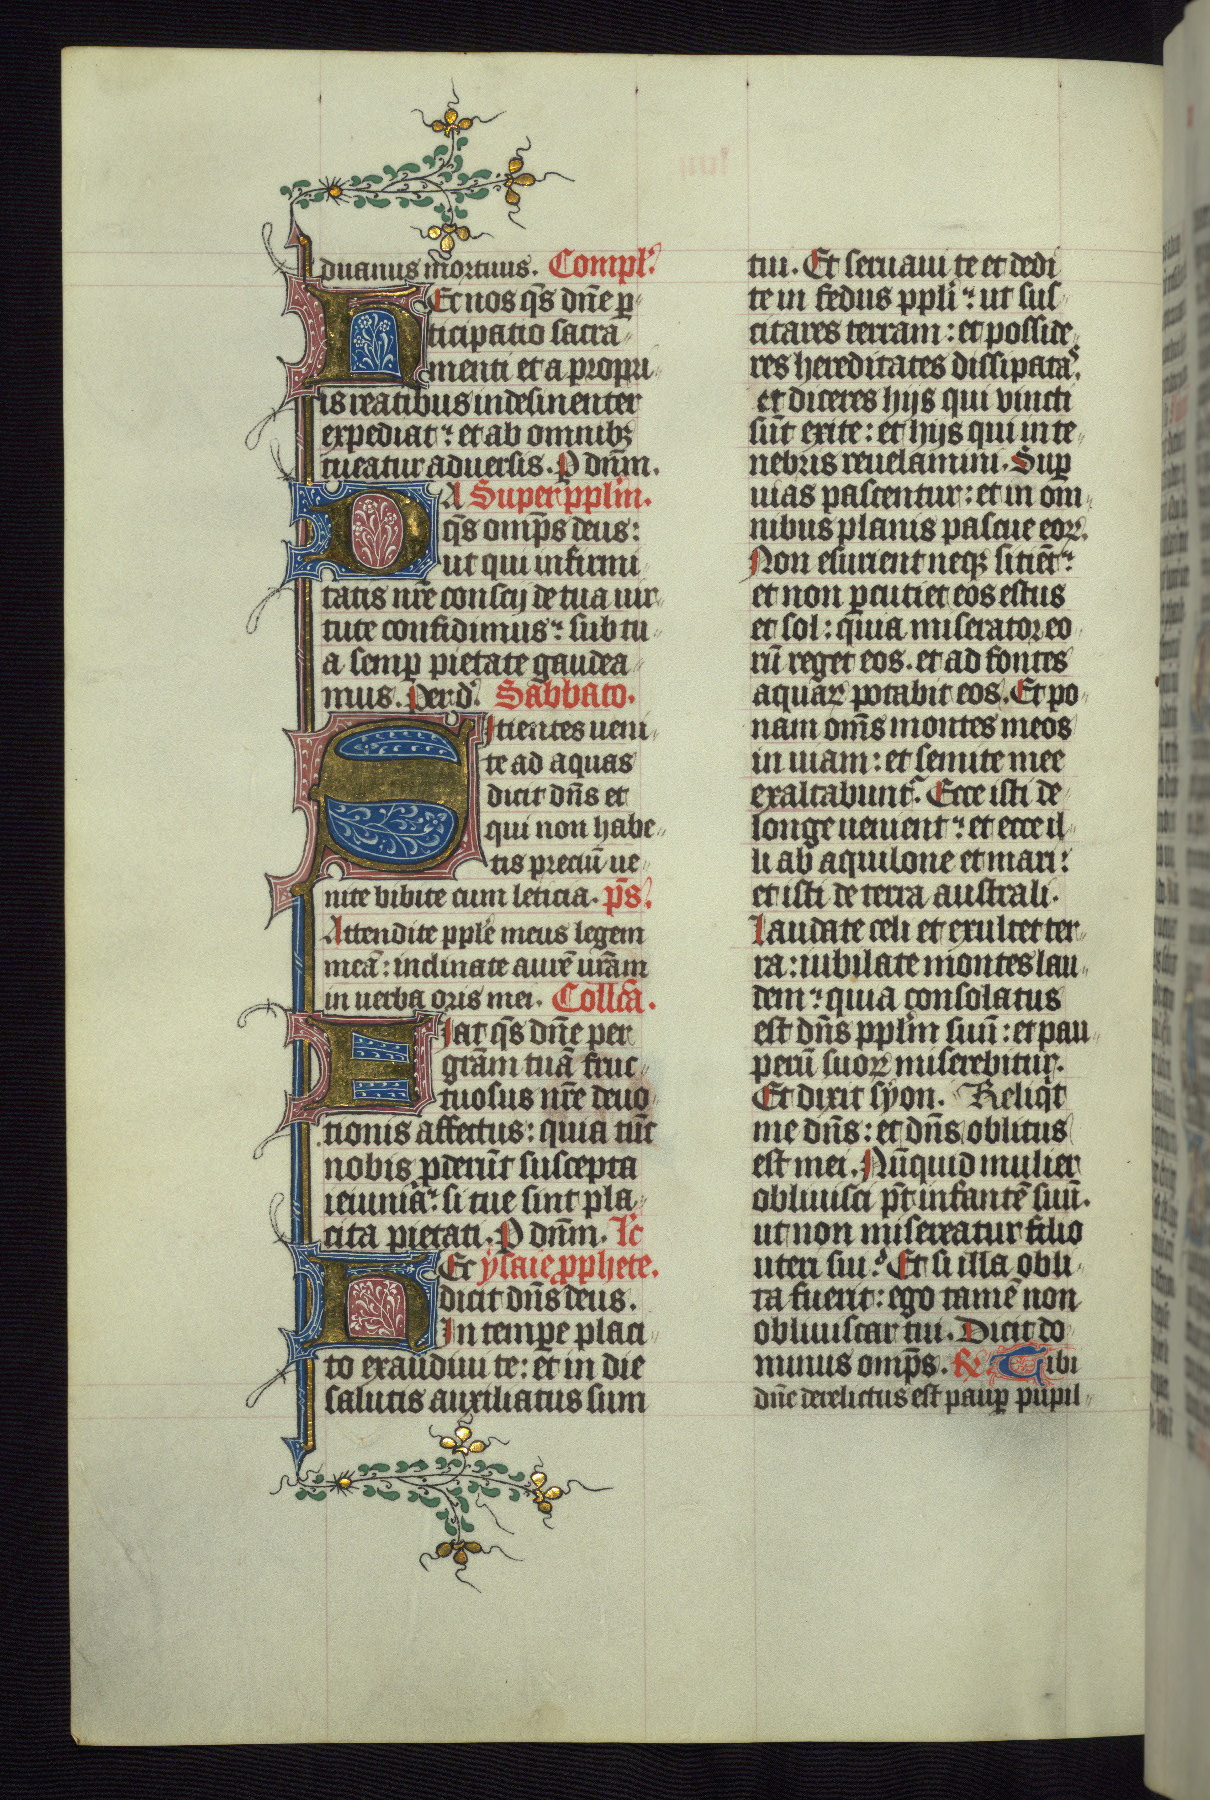 duanus mortuus. Compl'.
Ec nos q̄s dn̄e p̲
ticipatio sacra
menti et a propri
is reatibus indesinenter
expediat: et ab omnibꝫ
tueatur aduersis. P dn̄m.
A Super ppl̄m.
q̄s omp̄s deus:
ut qui infirmi
tatis nr̄e conscij de tua uir
tute confidimus: sub tu
a semꝑ pietate gaudea
mus. Per d'. Sabbato.
Itientes ueni
te ad aquas
dicit dn̄s et
qui non habe
tis preciū ue
nite bibite cum leticia. p̄s.
Attendite ppl̄e meus legem
meā: inclinate aurē ur̄am
in uerba oris mei. Coll̄cā.
Iat q̄s dn̄e per
gr̄am tuā fruc
tuosus nr̄e deuo
tionis affectus: quia tūc
nobis ꝓderūt suscepta
ieiunia: si tue sint pla
cita pietati. P dn̄m. l̄c
Ec ysaie ꝓphete.
dicit dn̄s deus.
In tempe placi
to exaudiui te: et in die
salutis auxiliatus sum
tui. Et seruaui te et dedi
te in fedus ppli: ut sus
citares terram: et posside
res hereditates dissipatas.
et diceres hijs qui vincti
sūt exite: et hijs qui in te
nebris reuelamini. Suꝑ
uias pascentur: et in om
nibus planis pascue eoꝝ.
Non esurient neqꝫ sitiēt:
et non ꝑcutiet eos estus
et sol: quia miserator eo
rū reget eos. et ad fontes
aquaꝝ potabit eos. Et po
nam om̄s montes meos
in uiam: et semite mee
exaltabunt'. Ecce isti de
longe uenient: et ecce il
li ab aquilone et mari:
et isti de terra australi.
Laudate celi et exultet ter
ra: iubilate montes lau
dem: quia consolatus
est dn̄s ppl̄m suū: et pau
perū suoꝝ miserebitur.
Et dixit syon. Reliq̇t
me dn̄s: et dn̄s oblitus
est mei. Nūquid mulier
obliuisci pt̄ infantē suū.
ut non misereatur filio
uteri sui? Et si illa obli
ta fuerit: ego tamē non
obliuiscar tui. Dicit do
minus omp̄s. R̸. Tibi
dn̄e derelictus est pauꝑ pupil